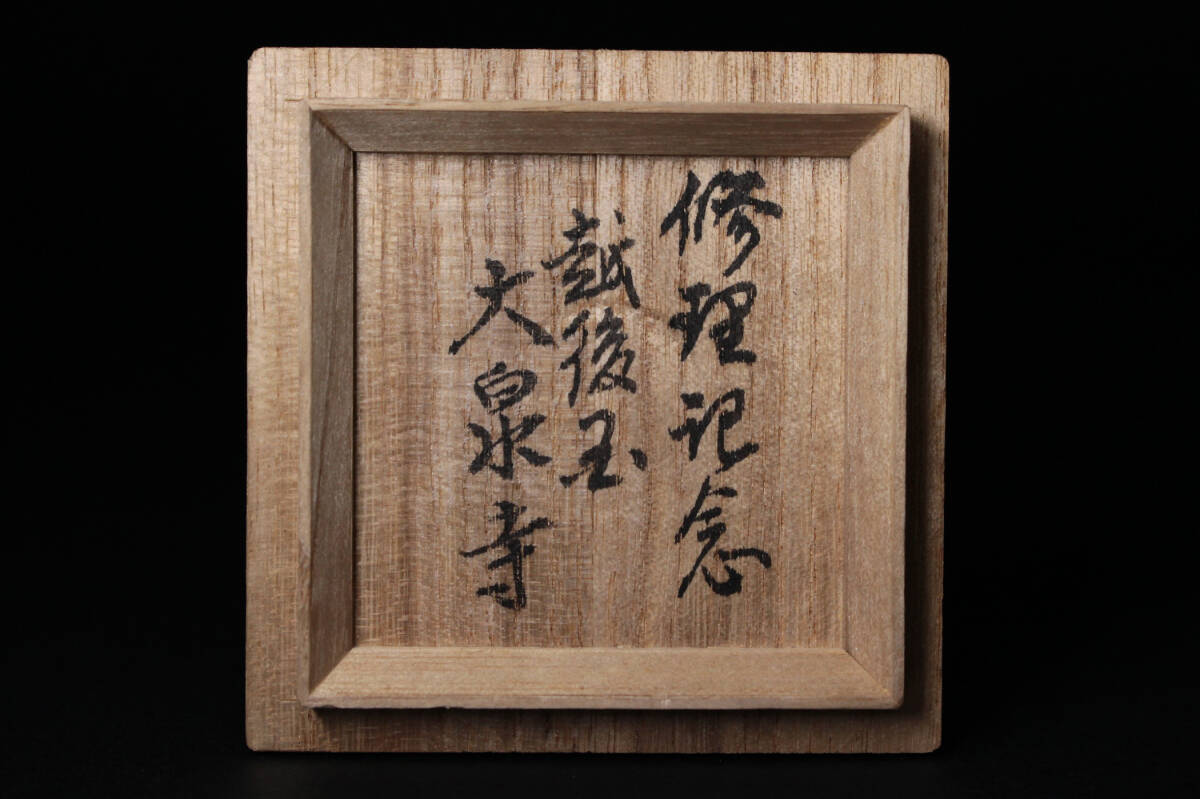 修理記念
越後国
大泉寺